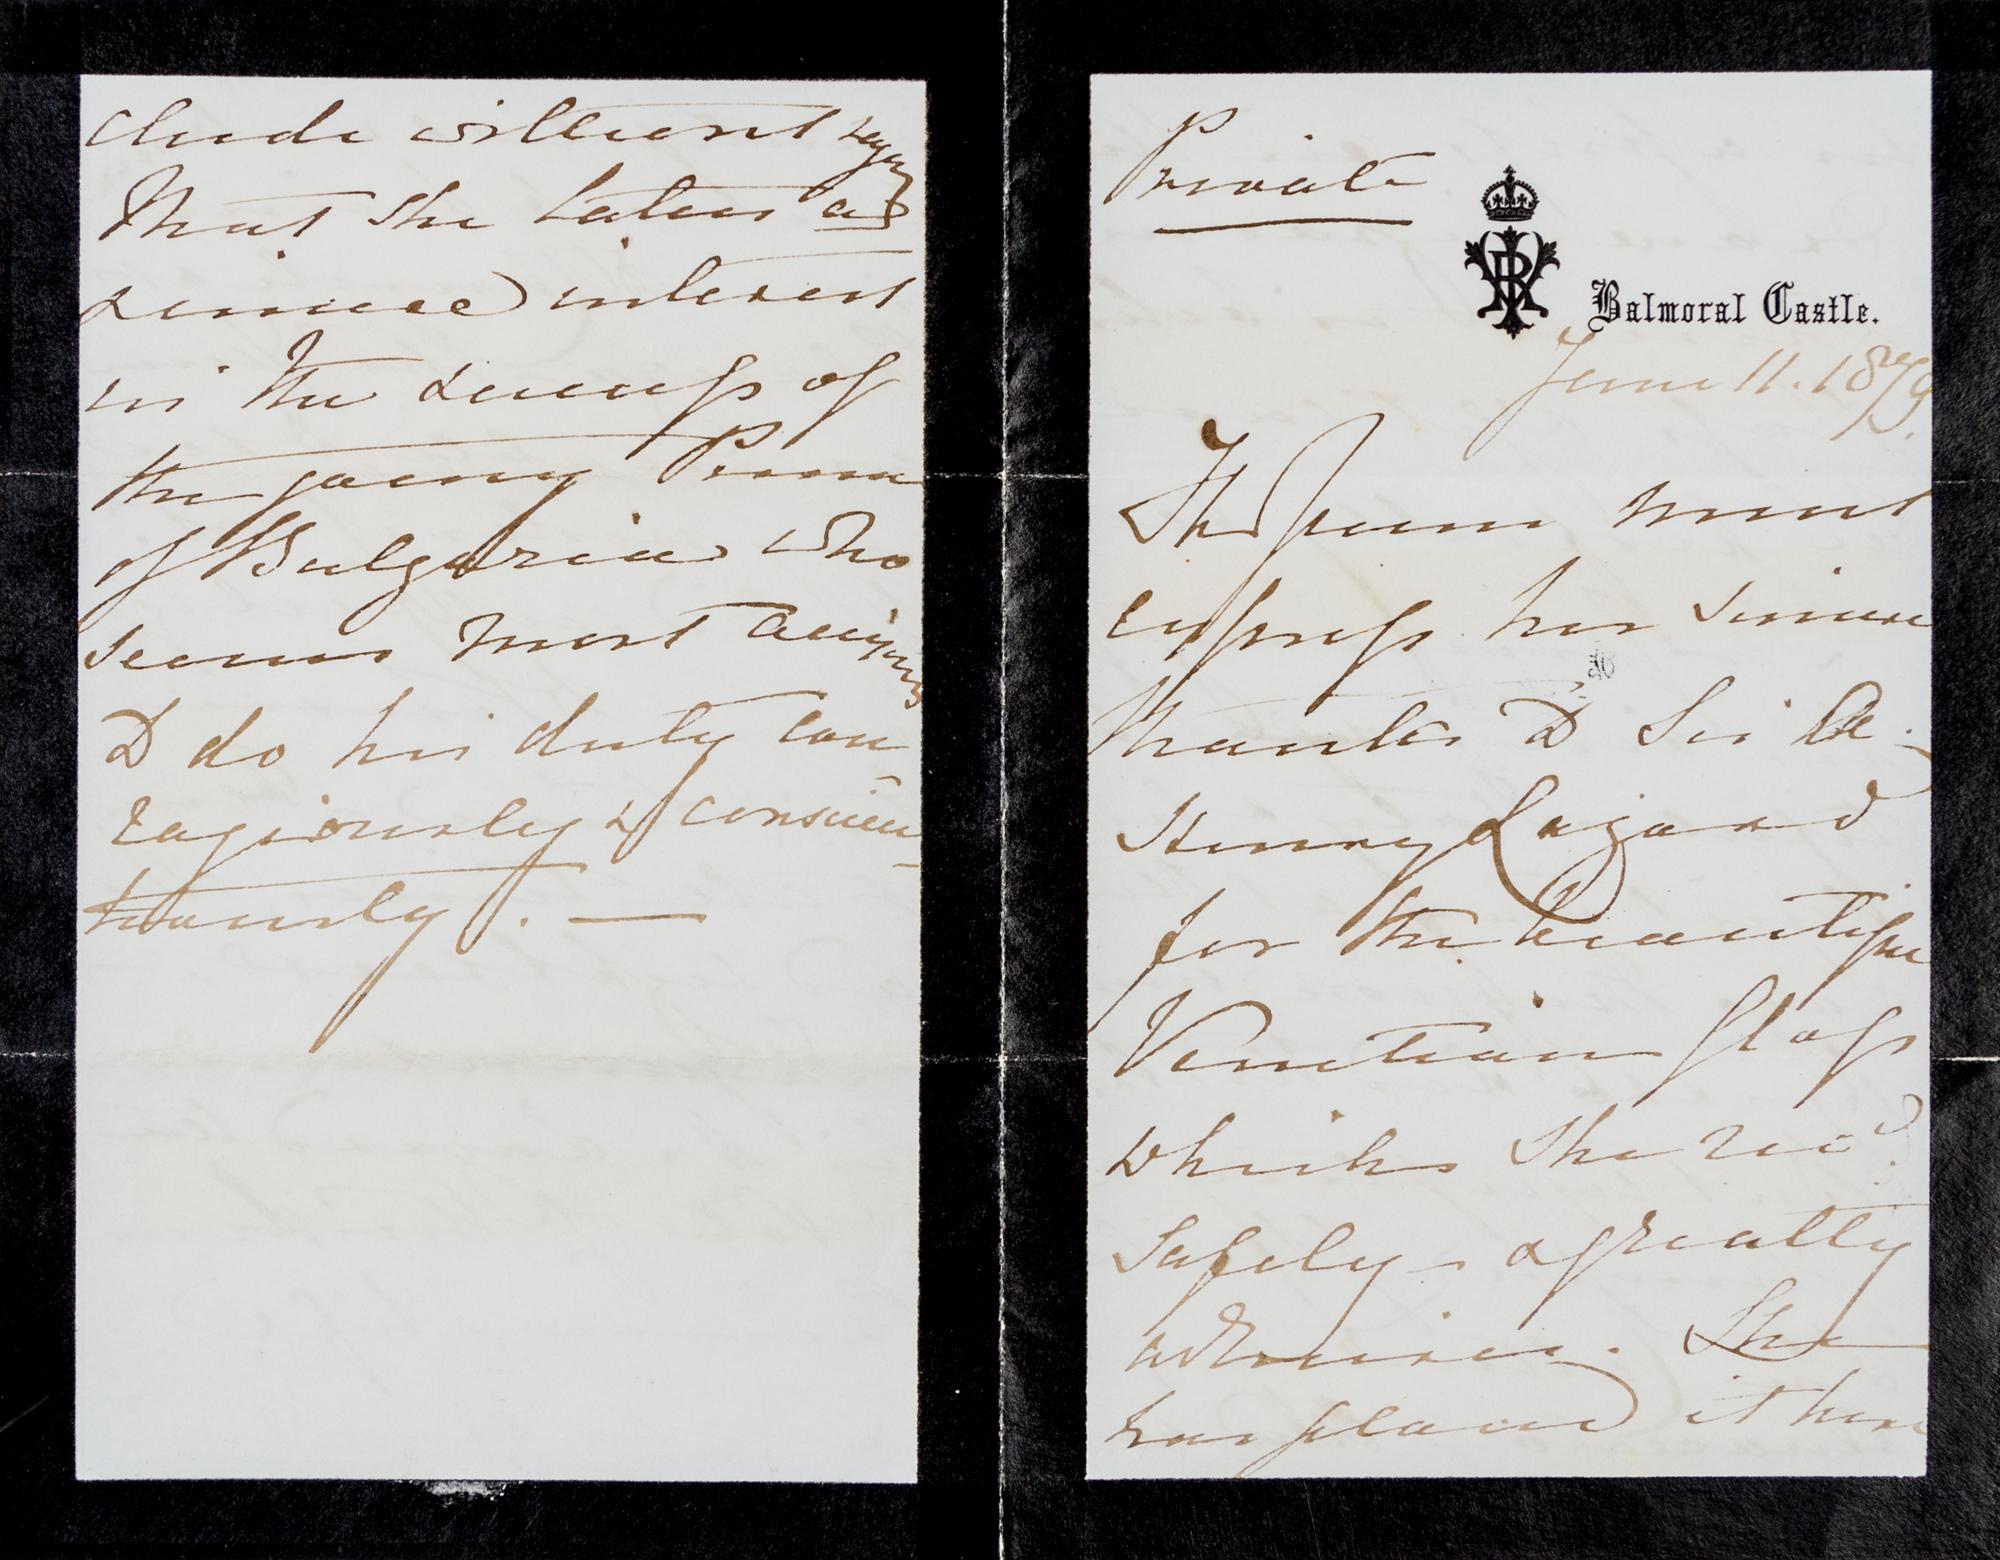 Private
VRI
Balmoral Castle.
June 11. 1879.
The Queen must
express her sincere
thanks to Sir A.
Henry Layard
for the beautiful
Venetian glass
which she recd.
safely & greatly
admires. She
has placed it here
clude without saying
that she takes a
sincere interest
in the success of
the young Prince
of Bulgaria who
seems most anxious
to do his duty cou
ragiously & conscien
tiously. —